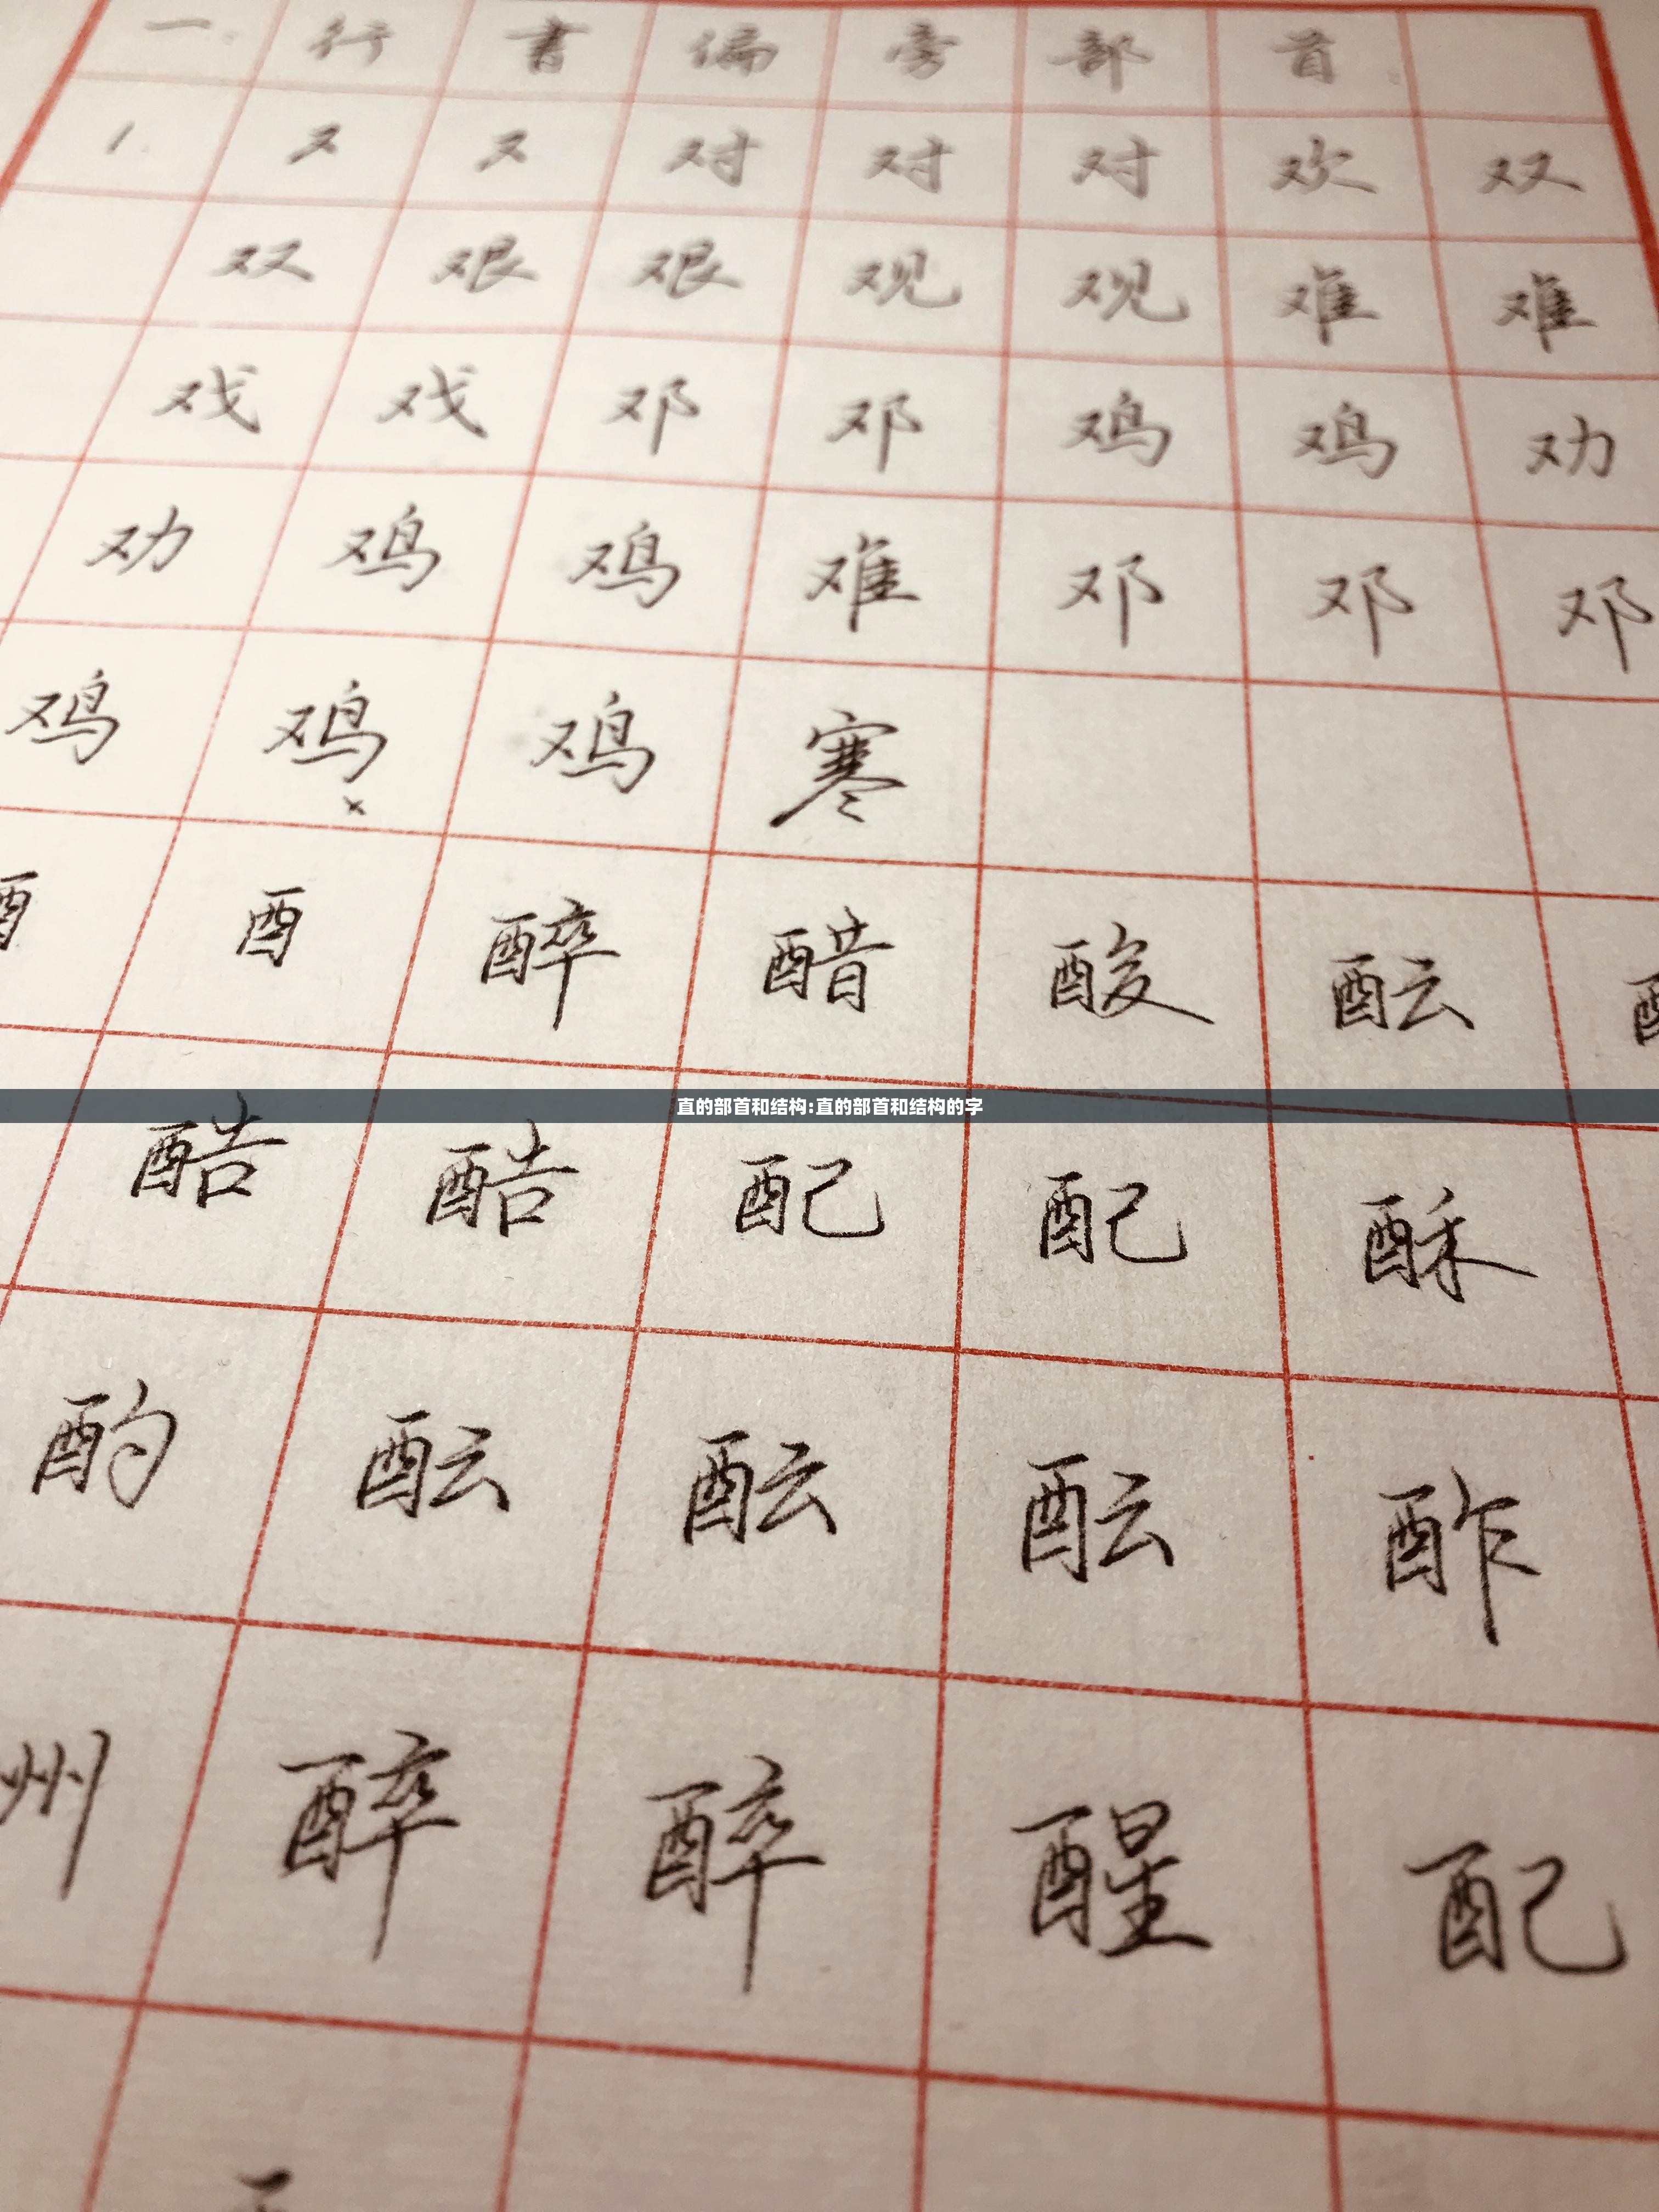 一. 行書偏旁部首
1. 又又对对对欢双
双艰艰观观难难
戏戏邓邓鸡鸡劝
劝鸡鸡难邓邓邓
鸡鸡鸡寒
×
酉醉醋酸酝
直的部首和结构:直的部首和结构的字
酷酷配配酥
酌酝酝酝酢
州醉醉醒配